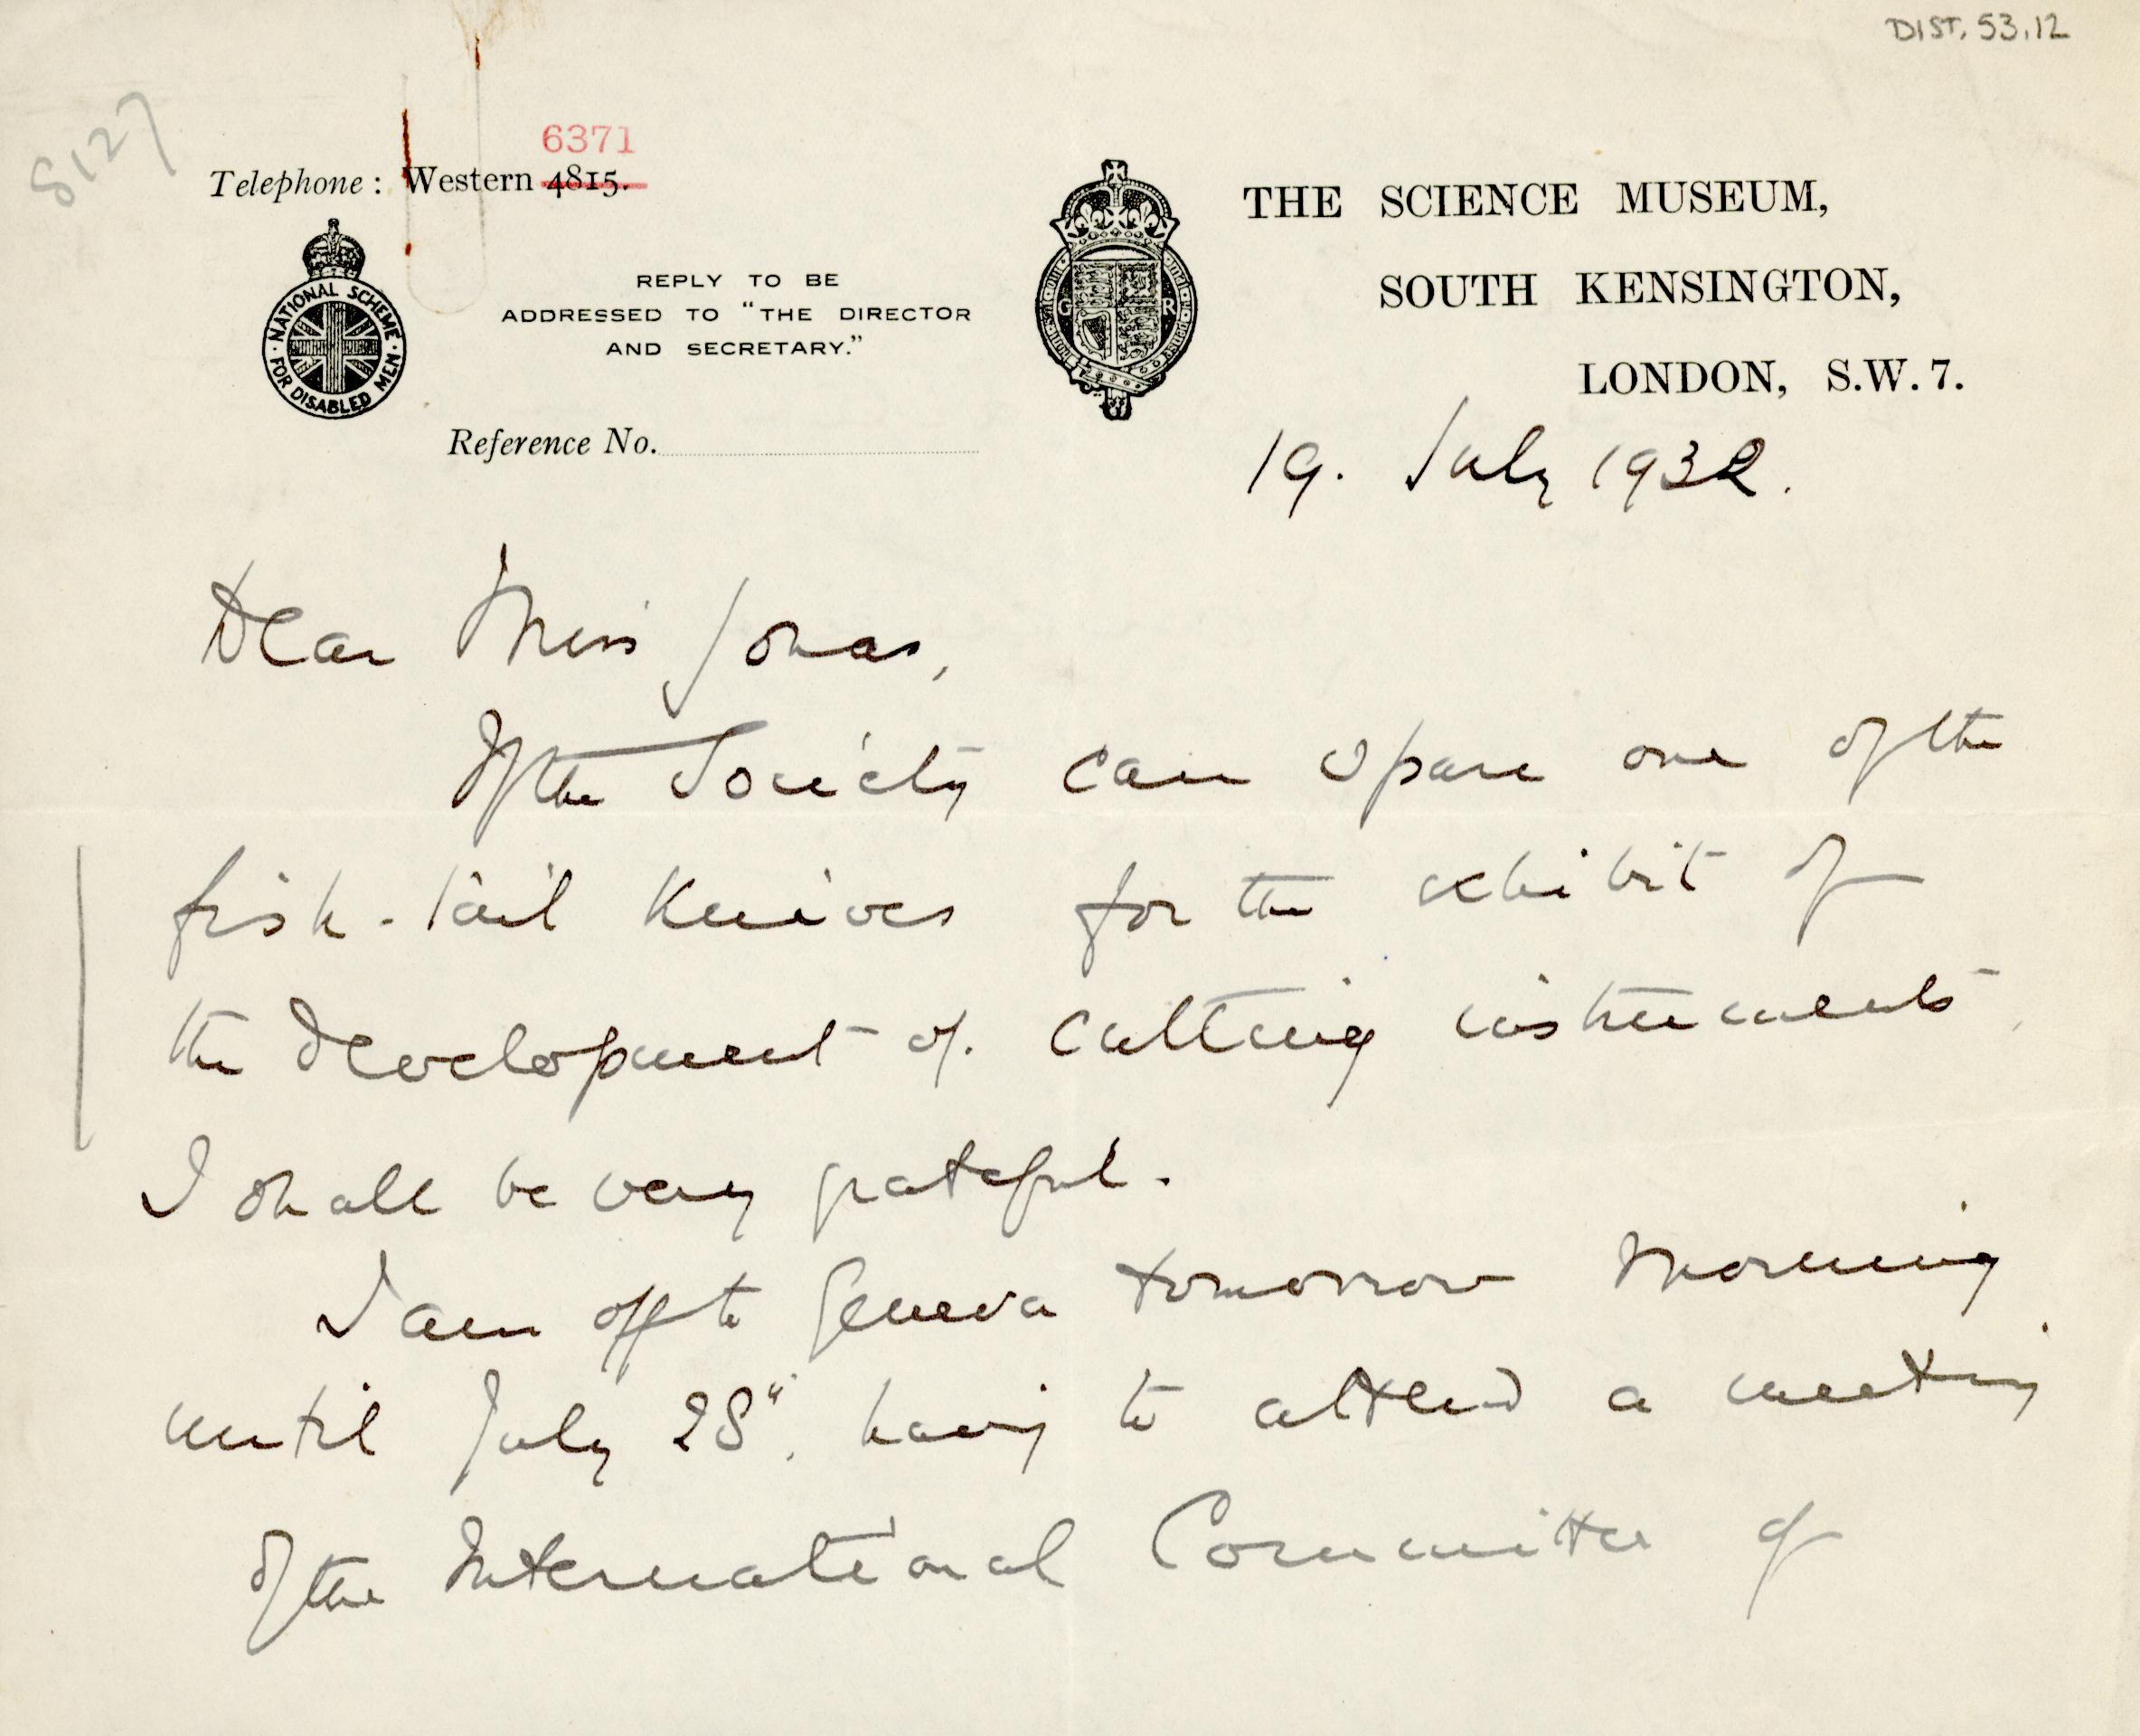 DIST. 53.12
8127
6371
Telephone: Western 4815.
NATIONAL SCHEME FOR DISABLED MEN
REPLY TO BE
ADDRESSED TO "THE DIRECTOR
AND SECRETARY."
Reference No.
G R
THE SCIENCE MUSEUM,
SOUTH KENSINGTON,
LONDON, S.W.7.
19. July 1932.
Dear Miss Jonas,
If the Society can spare one of the
fish-tail knives for the exhibit of
the development of cutting instruments,
I shall be very grateful.
I am off to Geneva tomorrow morning
until July 28th, having to attend a meeting
of the International Committee of